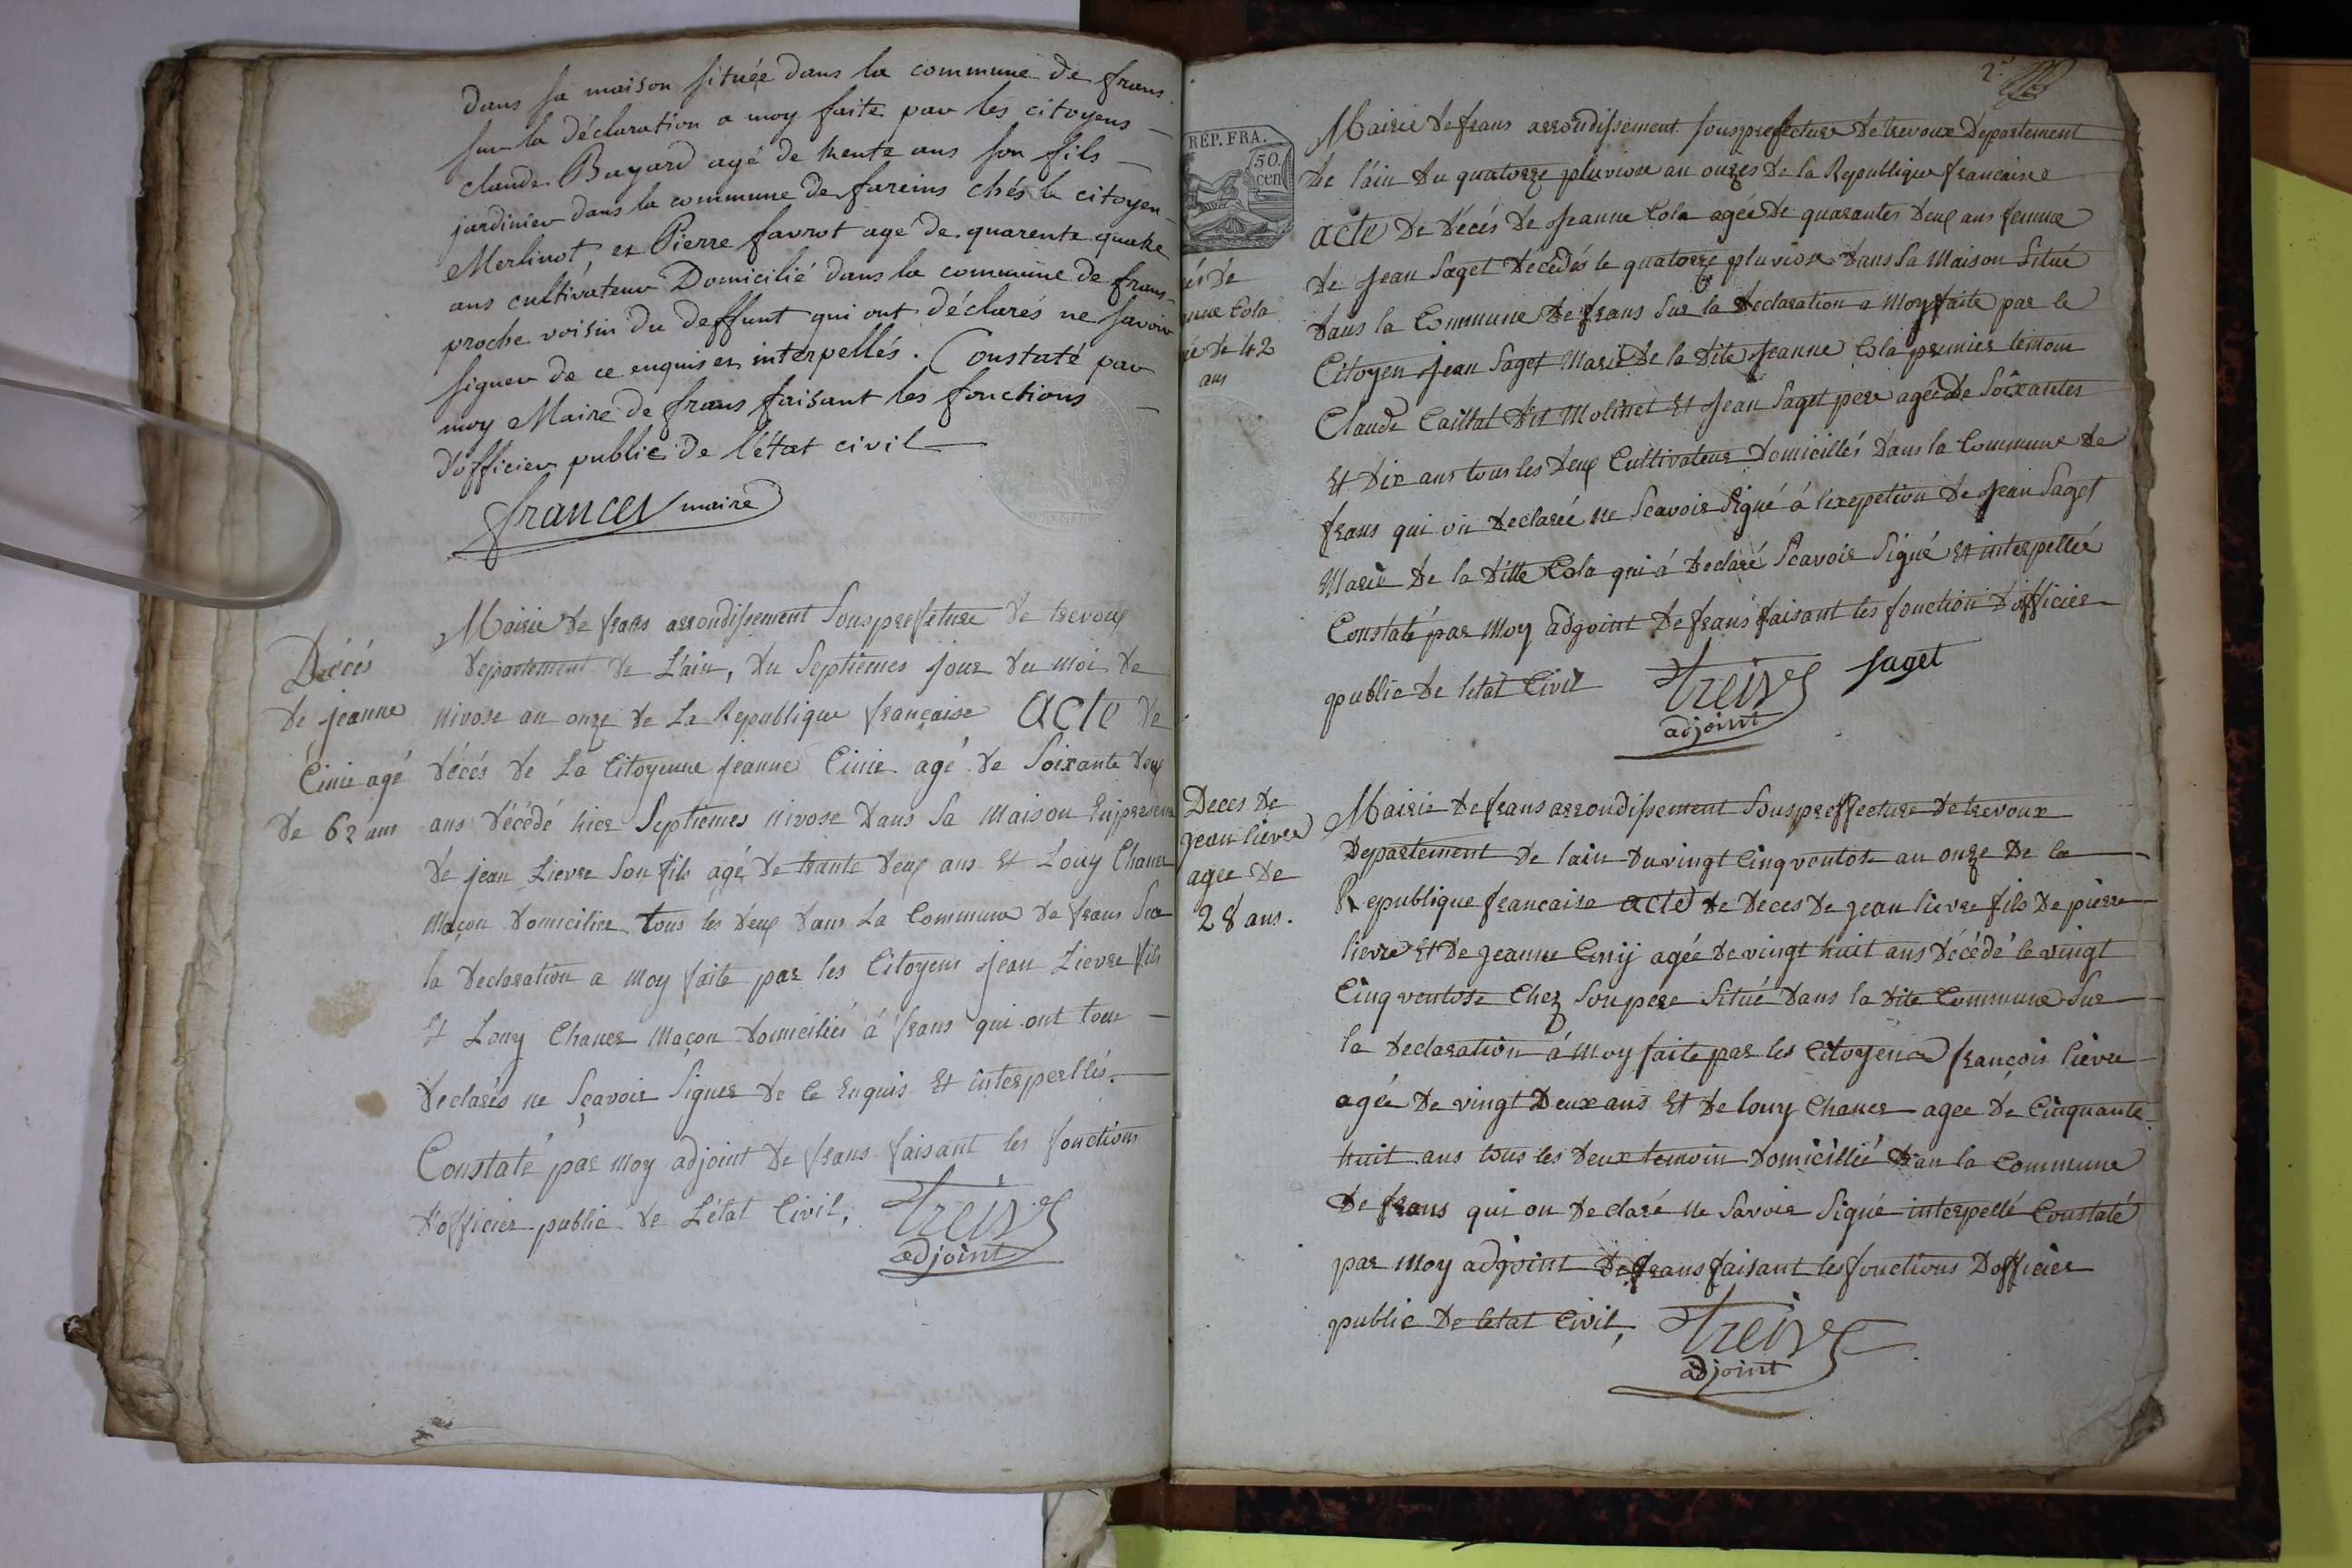 dans sa maison située dans la commune de frans
sur la déclaration a moy faite par les citoyens
claude Bayard agé de trente ans son fils
jardinier dans la commune de fareins chés le citoyen
Merlinot, et Pierre favrot agé de quarente quatre
ans cultivateur Domicilié dans la commune de frans
proche voisin du deffunt qui ont déclarés ne savoir
signer de ce enquis et interpellés. Constaté par
moy Maire de frans faisant les fonctions
d'officier public de l'état civil
frances maire
Décés
de jeanne
Cinie agé
de 62 ans
Mairie de frans arrondissement Sousprefeture de trevoux
departement de L'ain, du Septiemes jour du moi de
nivose an onze de La Republique française Acte de
décés de La Citoyenne jeanne Cinie agé de Soixante deux
ans décédé hier Septiemes nivose Dans Sa Maison
de jean Lievre Son fils agé de trante deux ans Et Louy Chaner
Maçon domicilier tous les deux dans La Commune de frans Sur
la declaration a moy faite par les Citoyens jean Lievre fils
Et Louy Chaner Maçon domiciliés á frans qui ont tous
declarés ne Sçavoir Signer de ce Enquis Et interpellés.
Constaté par moy adjoint de frans faisant les fonctions
d'officier public de L'état Civil,
Treive
adjoint
2e
RÉP. FRA.
50
cen
és de
nne Cola
ée de 42
ans
Mairie de frans arrondissement Sousprefecture de trevoux Departement
de l'ain du quatorze pluviose an onzes de la Republique francaise
acte de décés de jeanne Cola agée de quarantes deux ans femme
de jean Saget decedés le quatorze pluviose dans Sa Maison Situé
dans la Commune de frans Sur la declaration a Moy faite par le
Citoyen jean Saget Marie de la dite jeanne Cola premier temoin
Claude Caillat dit Molinet Et jean Saget pere agée de Soixantes
Et Dix ans tous les deux Cultivateur domicillés dans la Commune de
frans qui on declarée ne Scavoir Signé á l'exepetion de jean Saget
Marie de la ditte Cola qui á declaré Scavoir Signé Et interpellée
Constaté par Moy adgoint de frans faisant les fonction d'officier
public de letat Civil
Treive Saget
adjoint
Deces de
jean lievre
agee de
28 ans.
Mairie de frans arrondissement Souspreffecture de trevoux
Departement de lain du vingt Cinq ventose an onze de la
Republique francaise acte de deces de jean lievre fils de pierre
lievre Et de jeanne Cinij agée de vingt huit ans décédé le vingt
Cinq ventose Chez Son pere Situé dans la dite Commune Sur
la declaration á moy faite par les Citoyen françois lievre
agée de vingt deux ans Et de louy Chaner agee de Cinquante
huit ans tous les deux temoin domicillié dan la Commune
de frans qui on declaré ne Savoir Signé interpellé Constaté
par Moy adgoint de frans faisant les fonctions D'officier
public de letat Civil,
Treive
adjoint